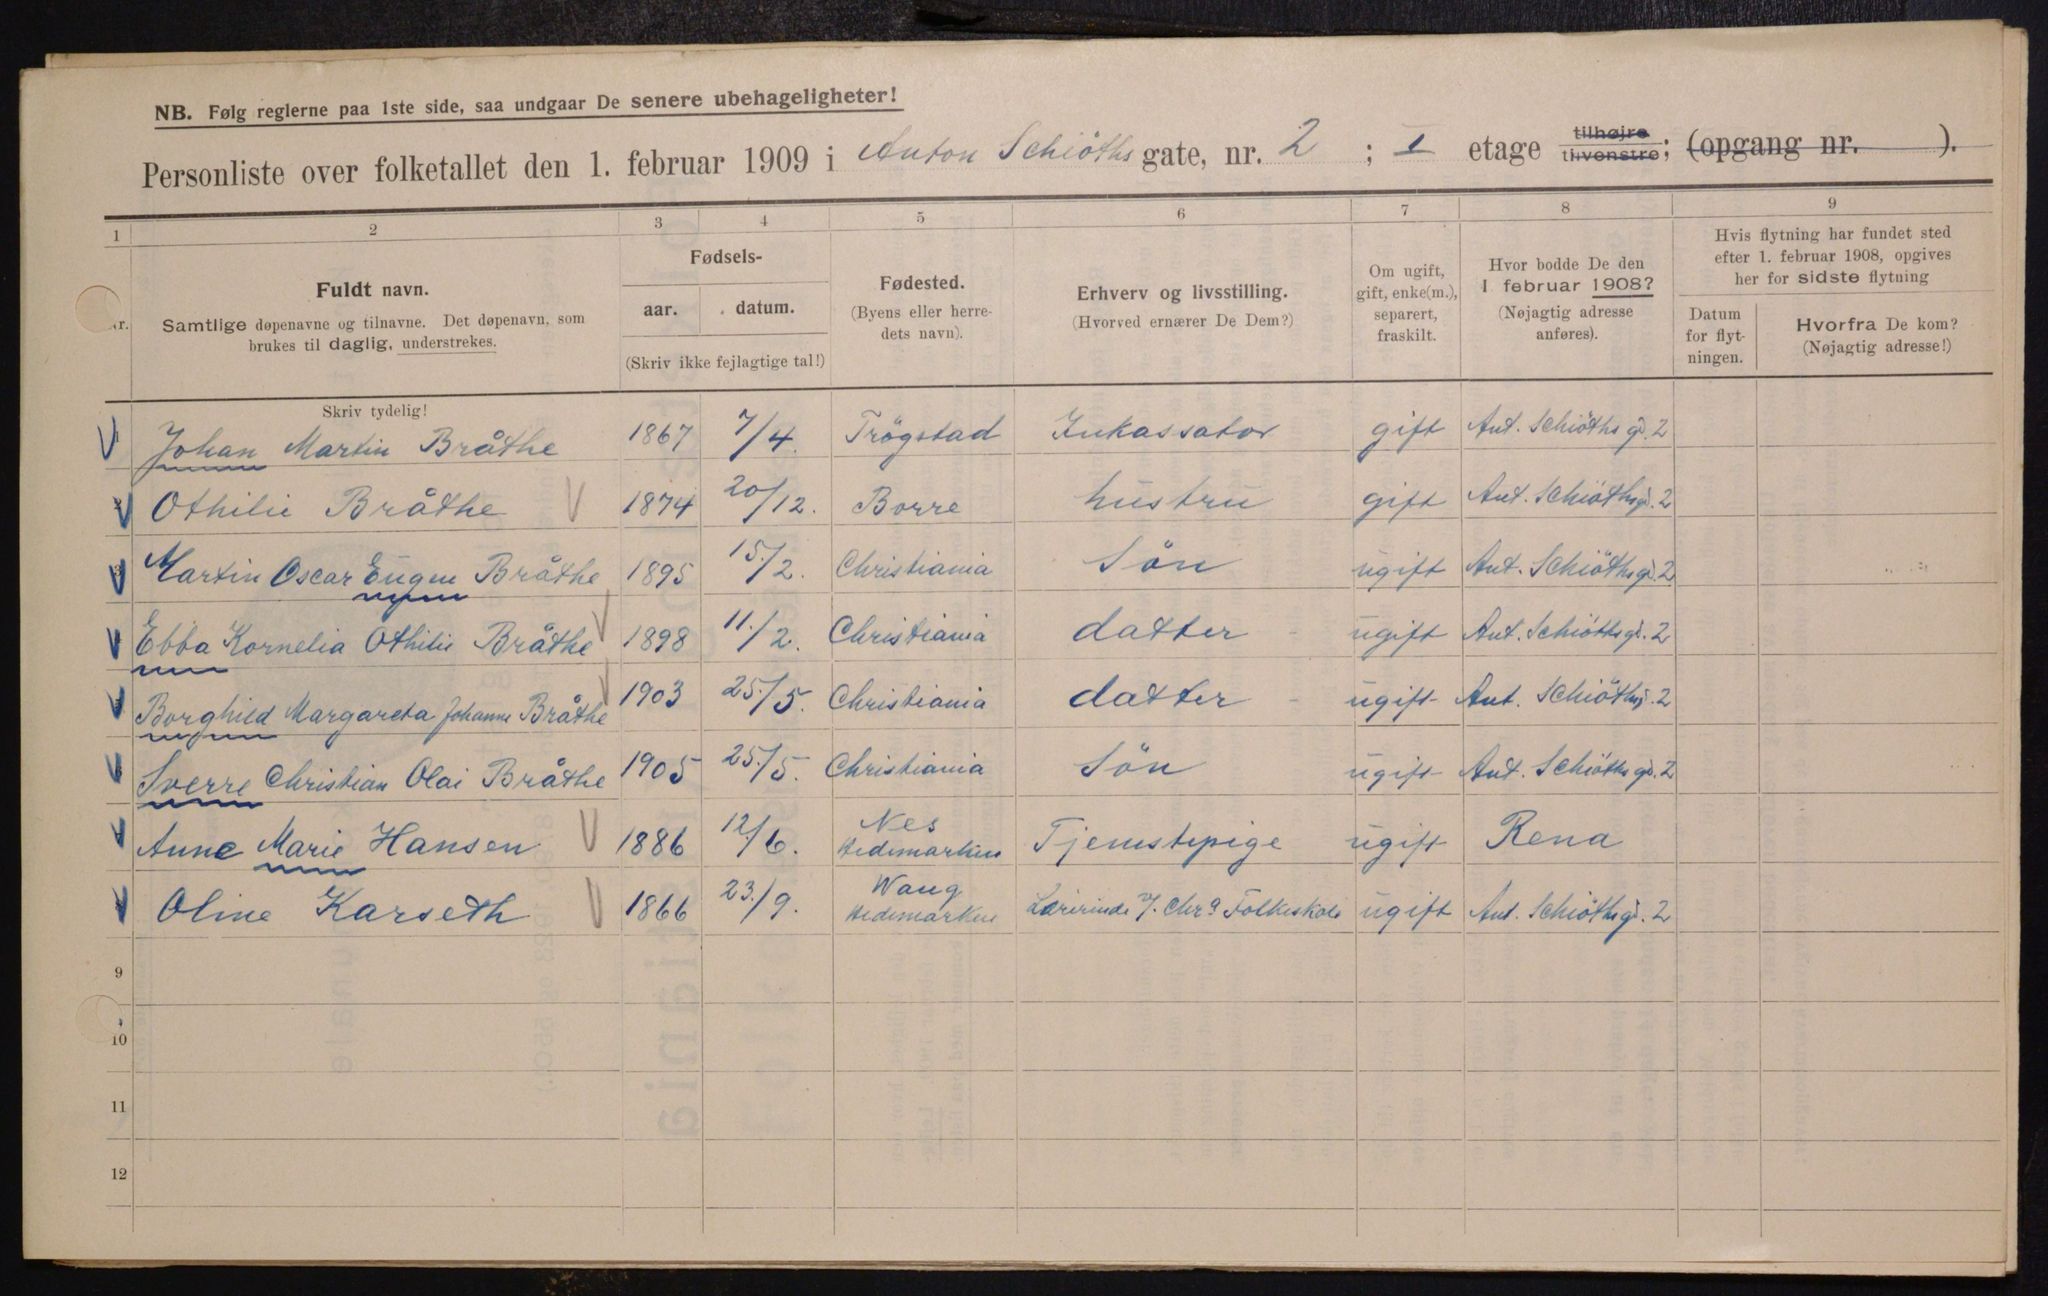 NB. Følg reglerne paa 1ste side, saa undgaar De senere ubehageligheter!
Personliste over folketallet den 1. februar 1909 i Anton Schiöths gate, nr. 2 ; I etage tilhøjre tilvenstre; (opgang nr. ).
1 2 3 4 5 6 7 8 9
Nr.
Fuldt navn.
Samtlige døpenavne og tilnavne. Det døpenavn, som
brukes til daglig, understrekes.
Fødsels-
aar. datum.
(Skriv ikke fejlagtige tal!)
Fødested.
(Byens eller herre-
dets navn).
Erhverv og livsstilling.
(Hvorved ernærer De Dem?)
Om ugift,
gift, enke(m.),
separert,
fraskilt.
Hvor bodde De den
1 februar 1908?
(Nøjagtig adresse
anføres).
Hvis flytning har fundet sted
efter 1. februar 1908, opgives
her for sidste flytning
Datum
for flyt-
ningen.
Hvorfra De kom?
(Nøjagtig adresse!)
Skriv tydelig!
Johan Martin Bråthe 1867 7/4. Trögstad Inkassator gift Ant. Schiöths gd. 2
Othilie Bråthe 1874 20/12. Borre hustru gift Ant. Schiöthsgd. 2
3 Martin Oscar Eugen Bråthe 1895 15./2. Christiania Sön ugift Ant. Schiöthsgd. 2
Ebba Kornelia Othilie Bråthe 1898 11./2. Christiania datter ugift Ant. Schiöthsgd. 2
Borghild Margareta Johanne Bråthe 1903 25./5. Christiania datter ugift Ant. Schiöthsgd. 2
Sverre Christian Olai Bråthe 1905 25./5. Christiania Sön ugift Ant. Schiöthsgd. 2
Anne Marie Hansen 1886 12/6. Nes Hedemarken Tjenstepige ugift Rena
Oline Karseth 1866 23./9. Wang Hedemarken Lærerinde v. Chr.a Folkeskole ugift Ant. Schiöthsgd. 2
9
10
11
12